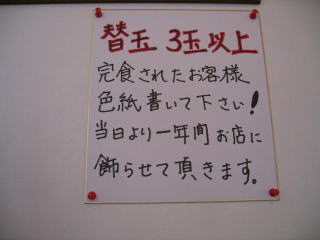 替玉 3玉以上
完食されたお客様
色紙書いて下さい!
当日より一年間お店に
飾らせて頂きます。